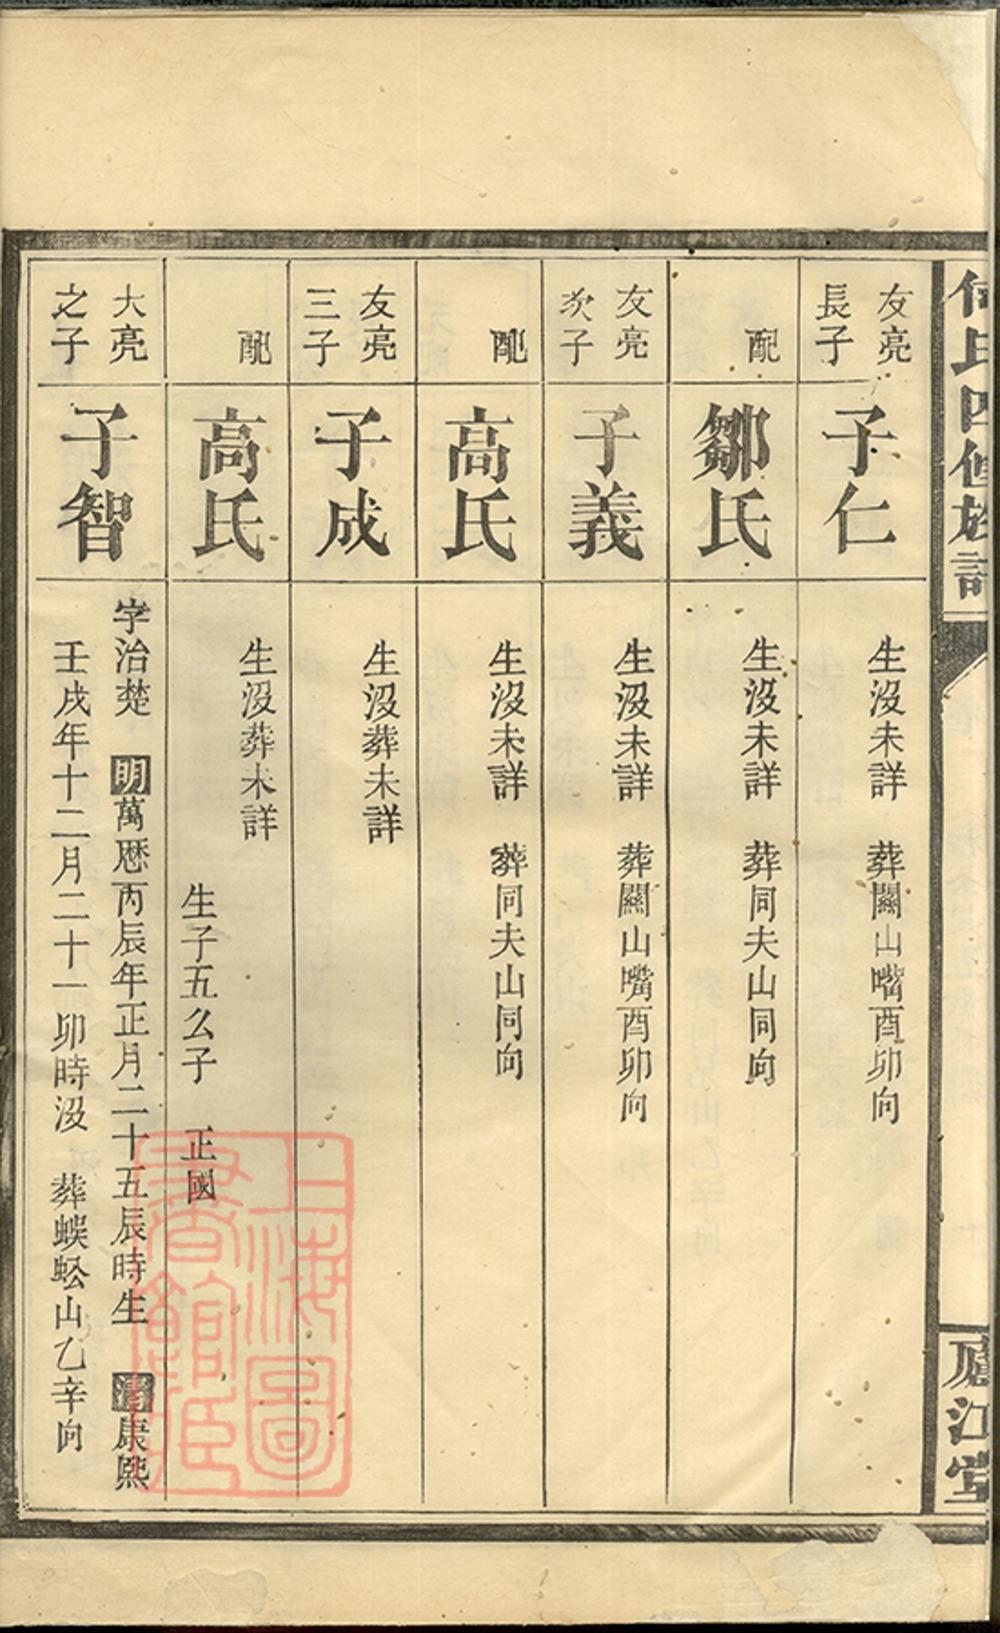 何氏四修族譜
廬江堂
友亮
長子
子仁
生沒未詳 葬關山嘴酉卯向
配
鄒氏
生沒未詳 葬同夫山同向
友亮
次子
子義
生沒未詳 葬關山嘴酉卯向
配
高氏
生沒未詳 葬同夫山同向
友亮
三子
子成
生沒葬未詳
配
高氏
生沒葬未詳
生子五么子 正國
大亮
之子
子智
字治楚 明萬厯丙辰年正月二十五辰時生 清康熙
壬戌年十二月二十一卯時沒 葬蜈蚣山乙辛向
上海圖
書館藏